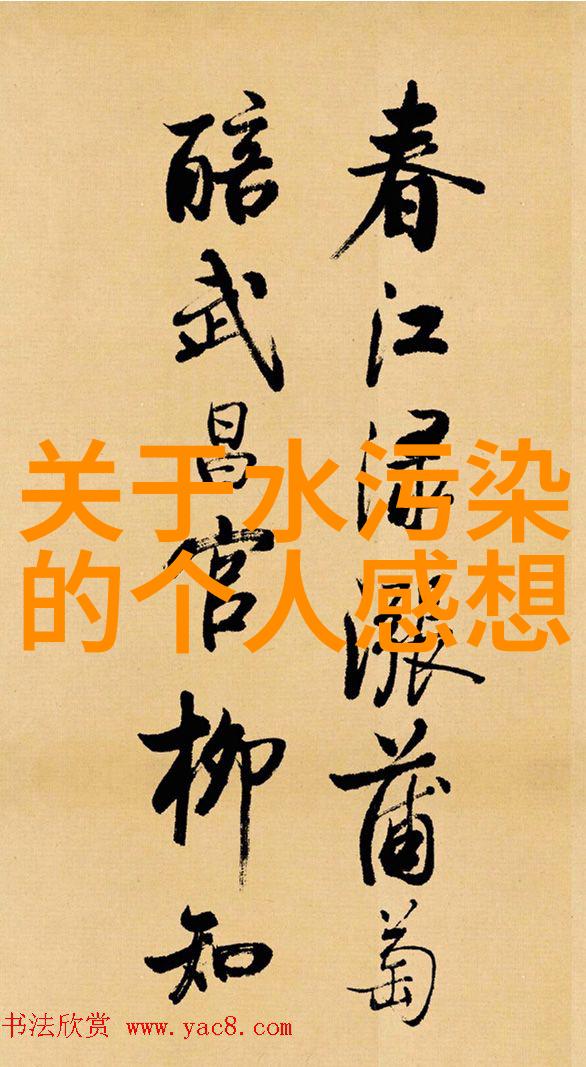 春江渌漲蒲萄
醅武昌官柳知
关于水污染
的个人感想
书法欣赏 www.yac8.com